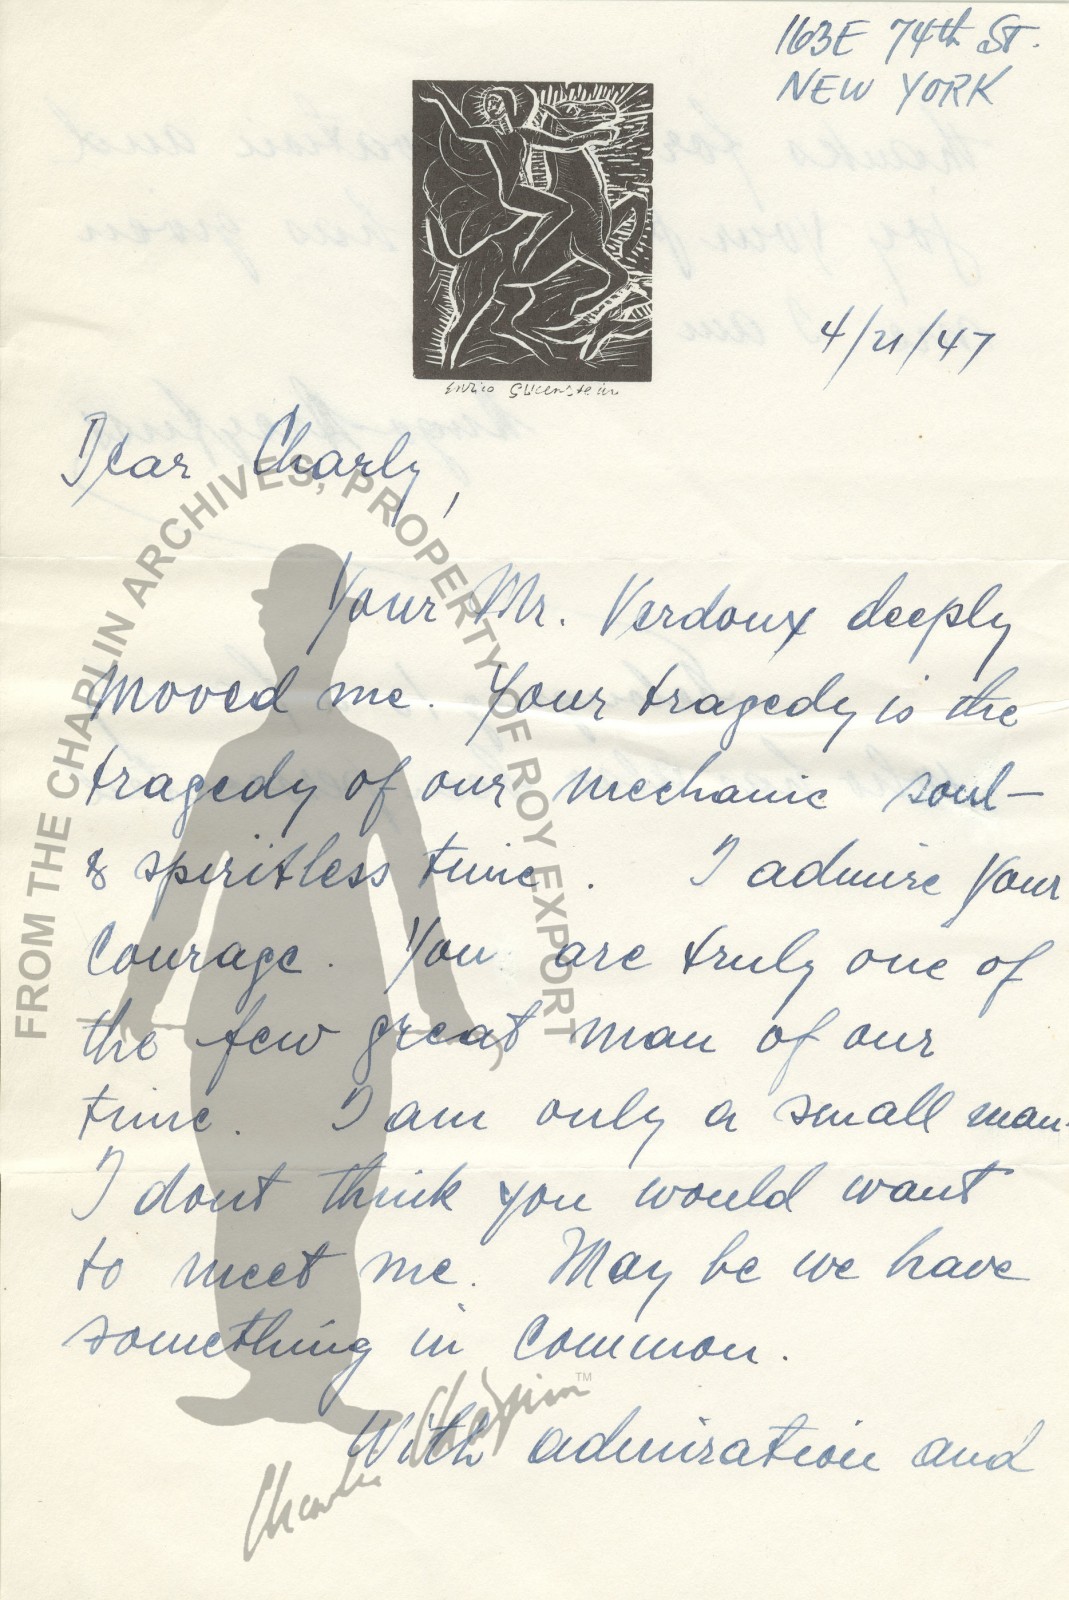 163E 74th ST.
NEW YORK
Enrico Glicenstein
4/21/47
Dear Charly,
Your Mr. Verdoux deeply
moved me. Your tragedy is the
tragedy of our mechanic soul-
& spiritless time. I admire your
courage. You are truly one of
the few great man of our
time. I am only a small man.
I dont think you would want
to meet me. May be we have
something in common.
With admiration and
FROM THE CHAPLIN ARCHIVES, PROPERTY OF ROY EXPORT
Charlie Chaplin TM